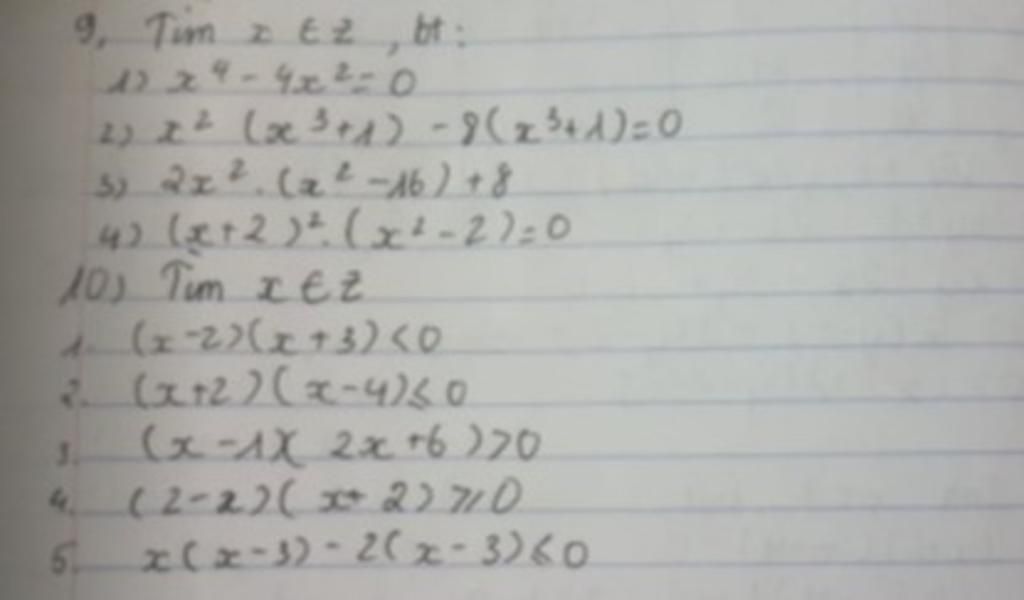 9, Tìm x ∈ Z, bt:
1) x⁴ - 4x² = 0
2) x² (x³+1) - 8(x³+1)=0
3) 2x².(x²-16)+8
4) (x+2)².(x²-2)=0
10) Tìm x ∈ Z
1. (x-2)(x+3)<0
2. (x+2)(x-4)≤0
3. (x-1)(2x+6)>0
4. (2-x)(x+2)≥0
5. x(x-3)-2(x-3)≤0